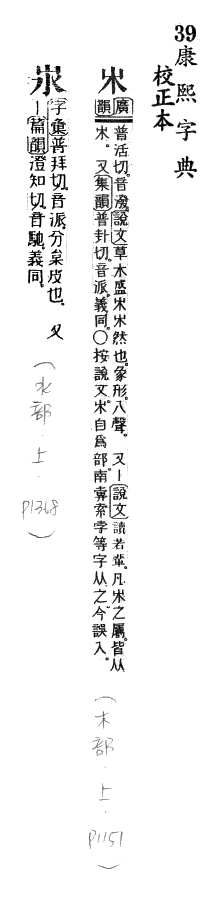 39康熙字典
校正本
𣎵
廣韻普活切。音潑。說文草木盛𣎵𣎵然也。象形。八聲。又丨說文讀若輩。凡𣎵之屬。皆从
𣎵。又集韻普卦切。音派。義同。○按說文𣎵自爲部。南𢍰索孛等字从之。今誤入。
(木部·上·P1151)
字彙普拜切。音派。分枲皮也。又
丨篇韻澄知切。音馳。義同。
(水部·上·P1368)